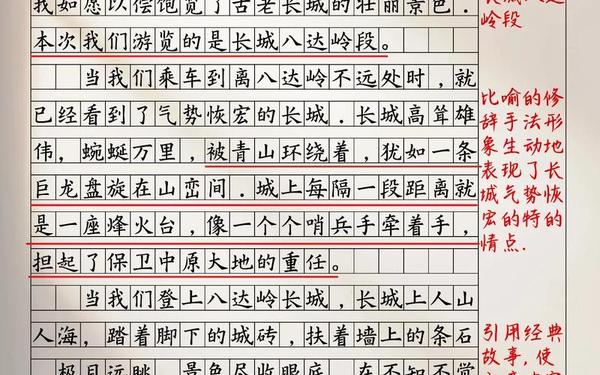 我如愿以偿饱览了古老长城的壮丽景色.
本次我们游览的是长城八达岭段。
岭段
当我们乘车到离八达岭不远处时，就
已经看到了气势恢宏的长城．长城高耸雄
伟，蜿蜒万里，被青山环绕着，犹如一条
巨龙盘旋在山峦间．城上每隔一段距离就
是一座烽火台，像一个个哨兵手牵着手，
担起了保卫中原大地的重任。
比喻的修
辞手法形
象生动地
表现了长
城气势恢
宏的特的
情点.
当我们登上八达岭长城，长城上人山
人海，踏着脚下的城砖，扶着墙上的条石
极目远眺，景色尽收眼底．在不知不觉
引用经典
故事，使